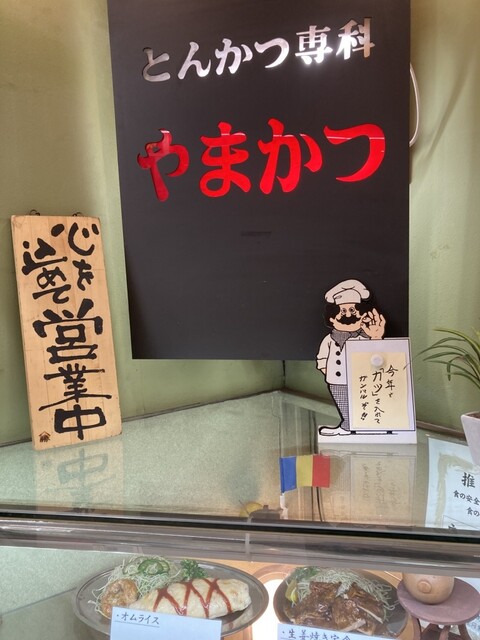 とんかつ専科
やまかつ
心を
込めて
営業中
今年も
「カツ」を入れて
ガンバルぞ!!
推
食の安全
食の
・オムライス
・生姜焼き定食